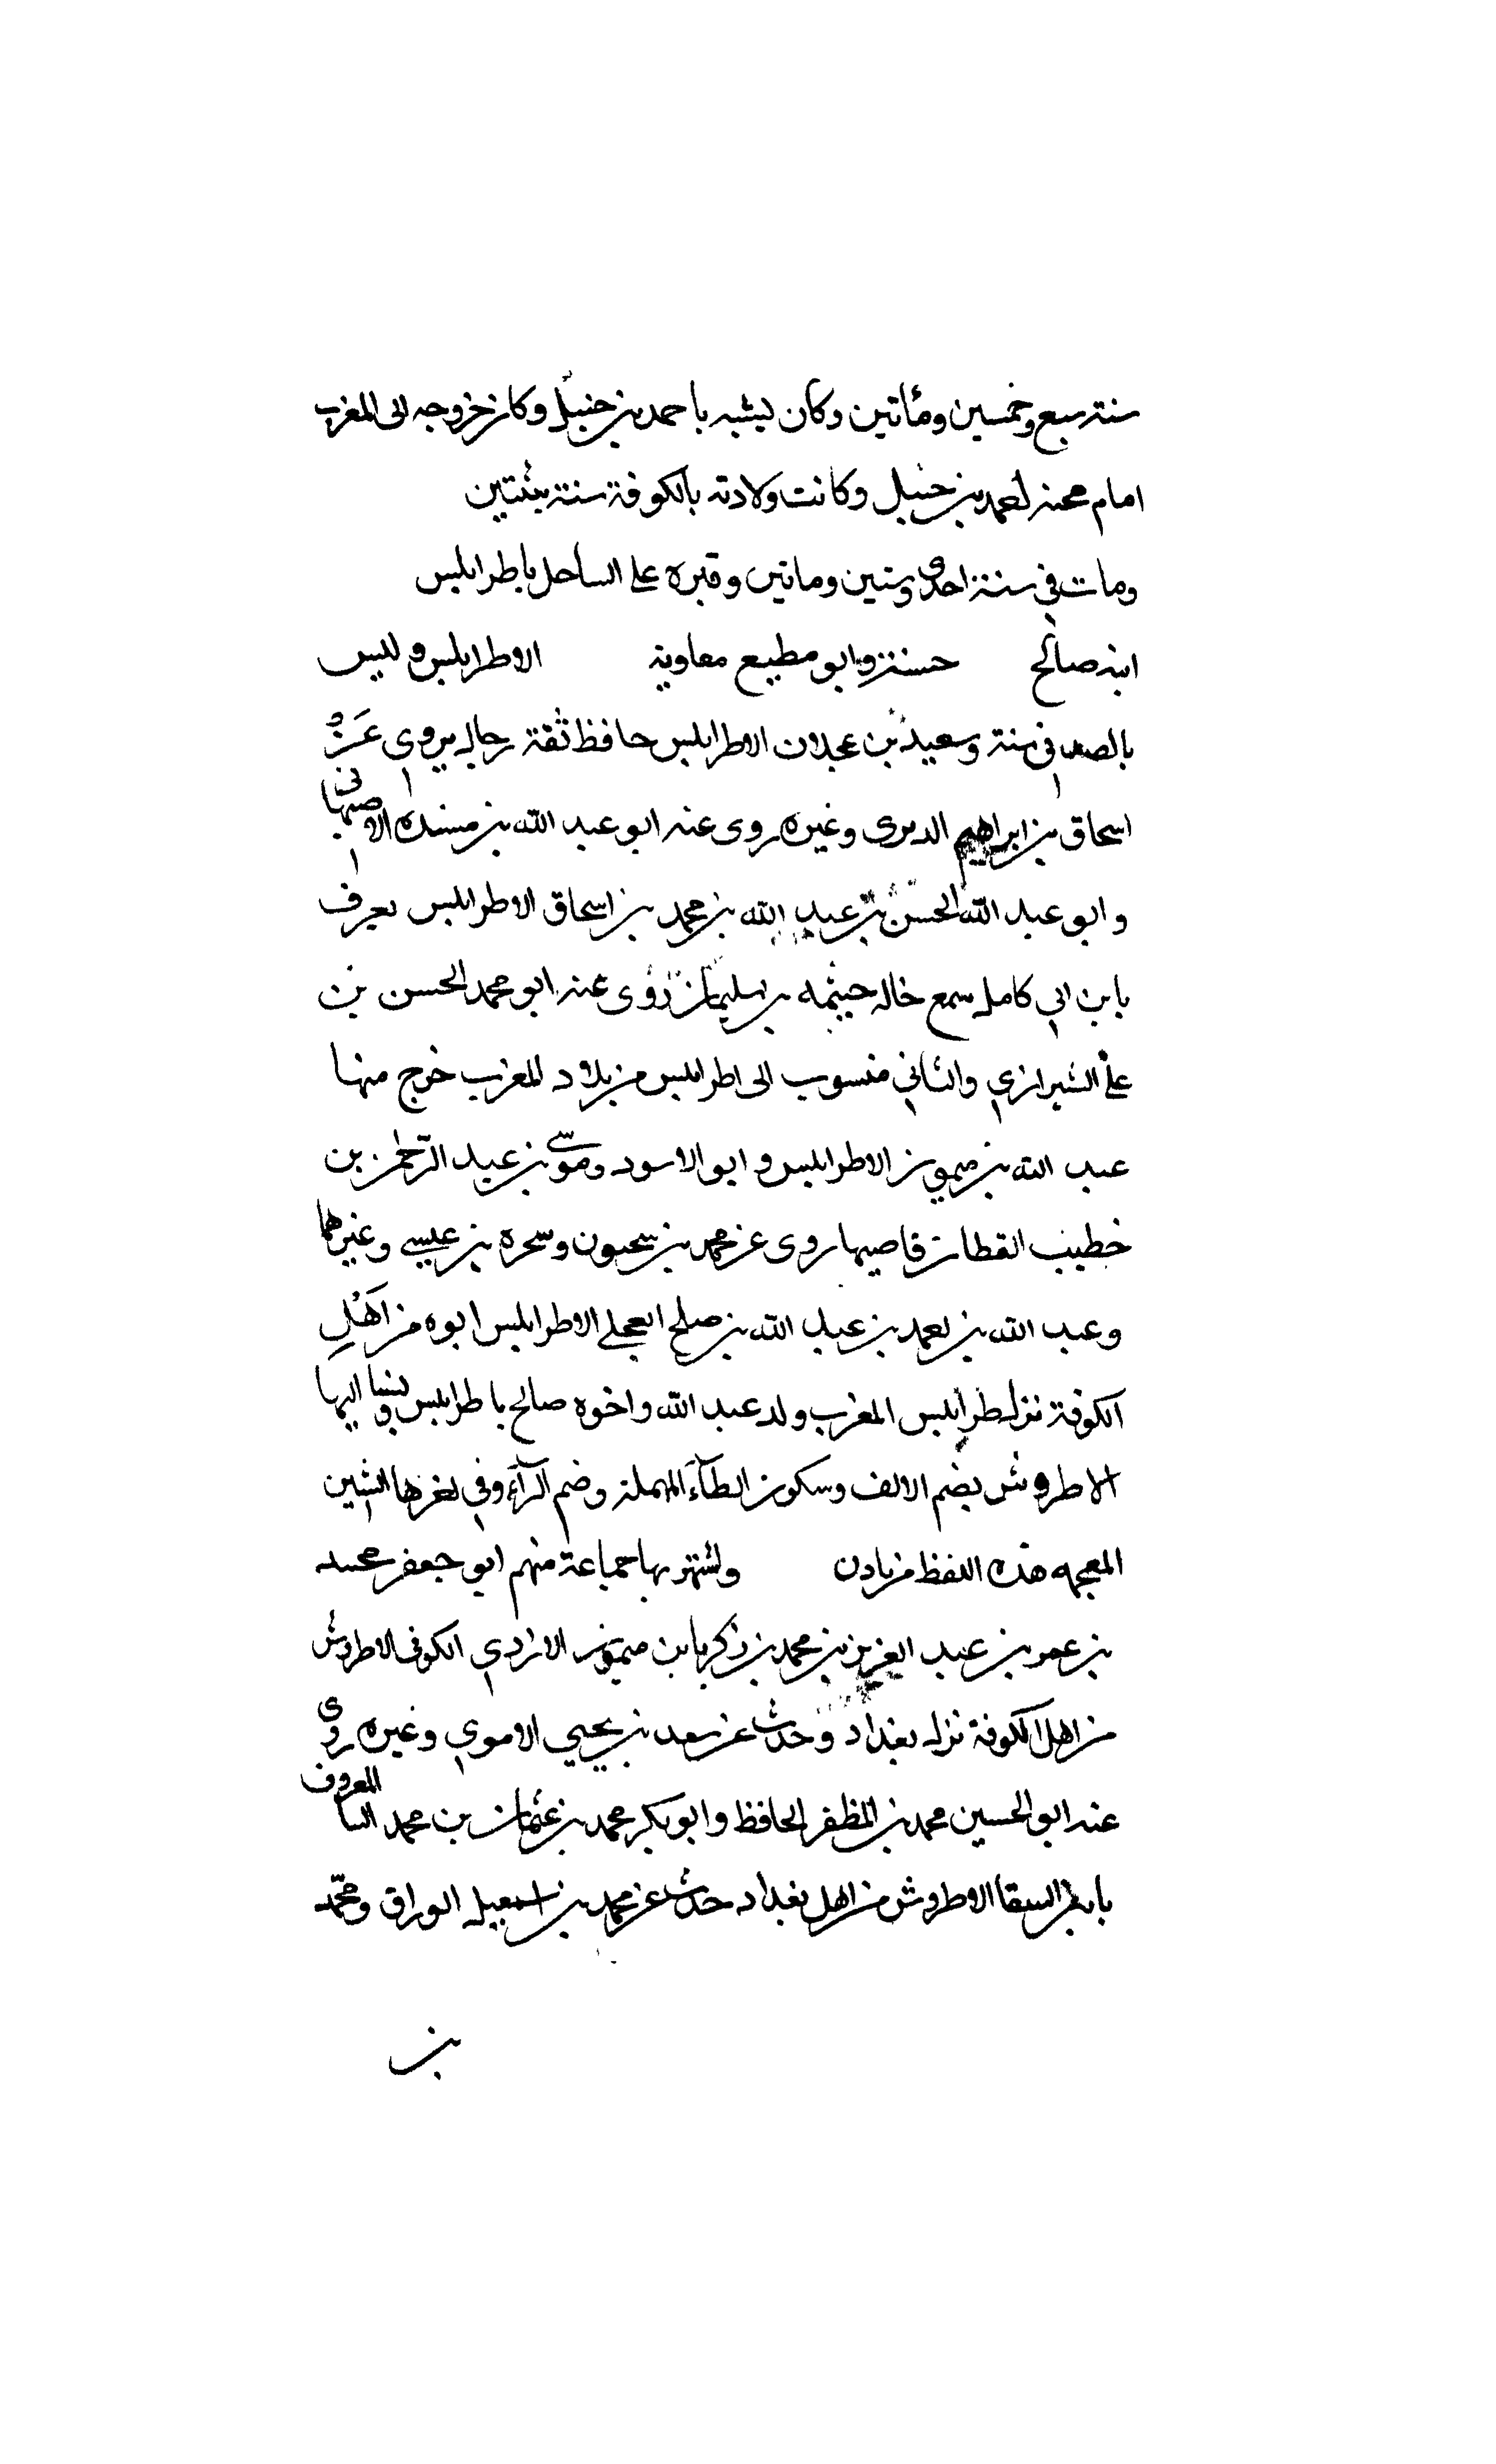 سنة سبع وخمسين ومأتين وكان يشبه باحمد بن حنبل وكان خروجه الى المغرب
امام محنه احمد بن حنبل وكانت ولادته بالكوفة سنة ثنتين
ومات في سنة احدى وستين وماتين وقبره على الساحل باطرابلس
ابنه صالح حسنة وابو مطيع معاوية الاطرابلس و ليس
في سنة وسعيد بن عجلان الاطرابلس حافظ ثقة رجاله يروى عن
اسحاق بن ابراهيم الدبرى وغيره روى عنه ابو عبد الله بن منده الاصبهاني
وابو عبد الله الحسن بن عبد الله بن محمد بن اسحاق الاطرابلس يعرف
بابن ابي كامل سمع خاله خيثمه بن سليمان روى عنه ابو محمد الحسن بن
على الشيرازي والثاني منسوب الى اطرابلس من بلاد المغرب خرج منها
عبد الله بن ميمون الاطرابلس و ابو الاسود وموسى بن عبد الرحمن بن
خطيب القطان قاضيها روى عن محمد بن سحنون وسحره بن عيسى وغيرهما
وعبد الله بن احمد بن عبد الله بن صلح العجلي الاطرابلس ابوه من اهل
الكوفة نزل طرابلس المغرب ولد عبد الله واخوه صالح باطرابلس ونسبا اليها
الاطروش بضم الالف وسكون الطآء المهملة وضم الرآء وفي اخرها الشين
المعجمه هذه اللفظ من باذن واشتهر بها جماعة منهم ابو جعفر محمد
بن عمر بن عبد العزيز بن محمد بن زكريا بن ميمون الازدي الكوفى الاطروش
من اهل الكوفة نزل بغداد وحدث عن سعد بن يحيي الاموي وغيره روى
عنه ابو الحسين محمد بن المظفر الحافظ وابو بكر محمد بن عثمان بن محمد المعروف
السقا الاطروش من اهل بغداد حدث عن محمد بن اسمعيل الوراق ومحمد
بن